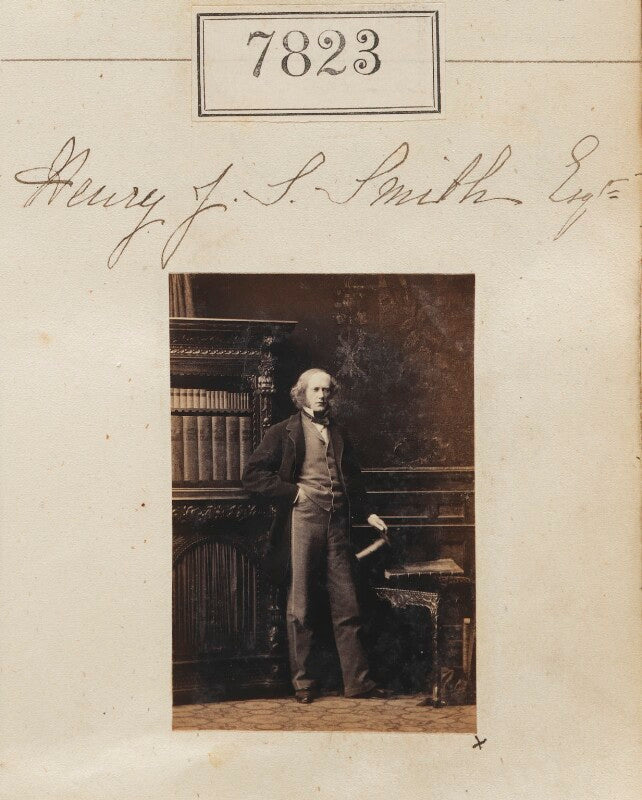 7823
Henry J. S. Smith Esqre
x